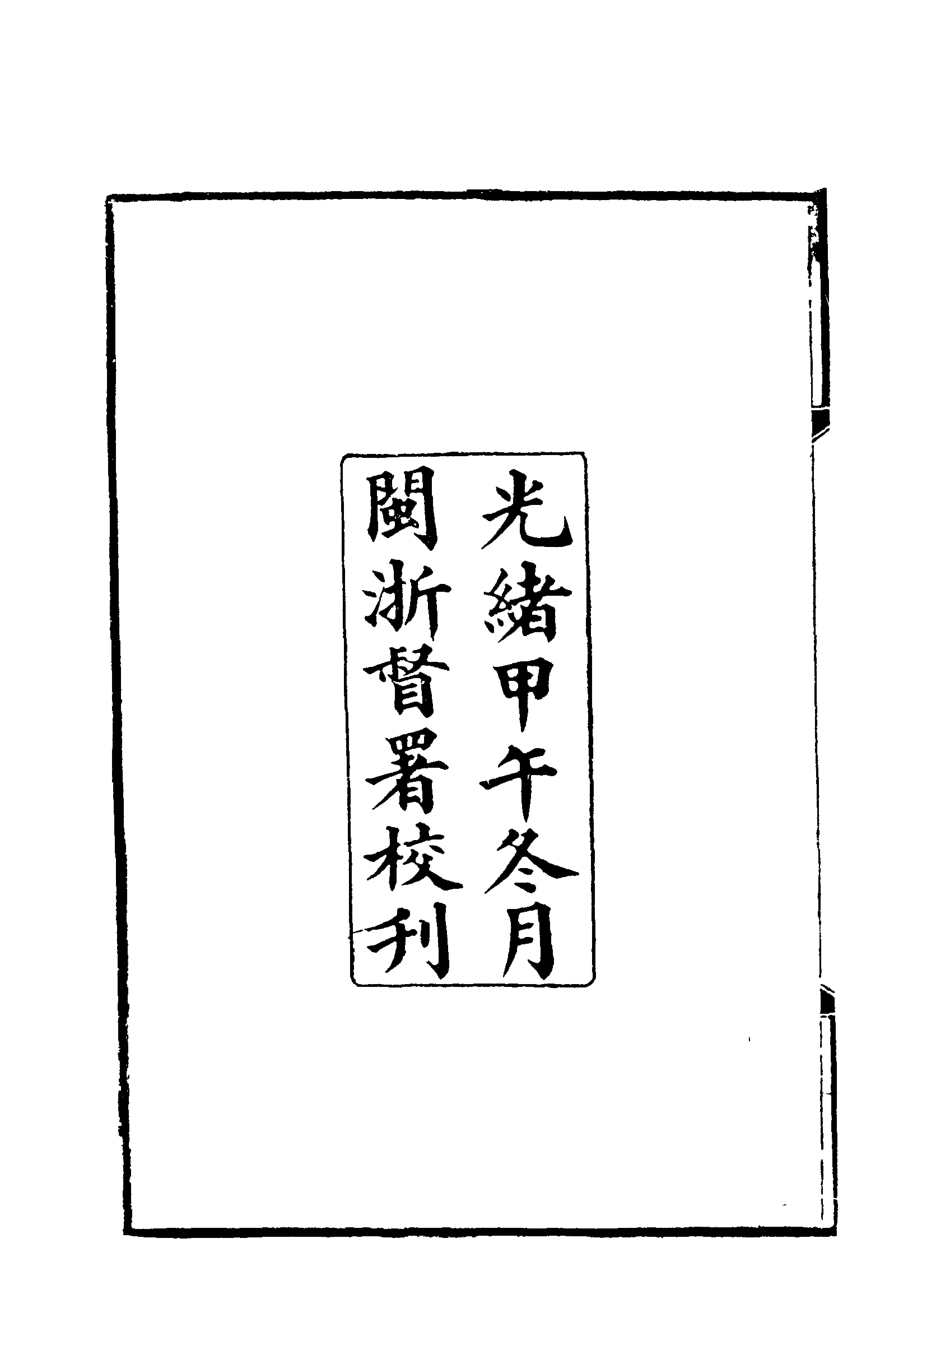 光緒甲午冬月
閩浙督署校刋